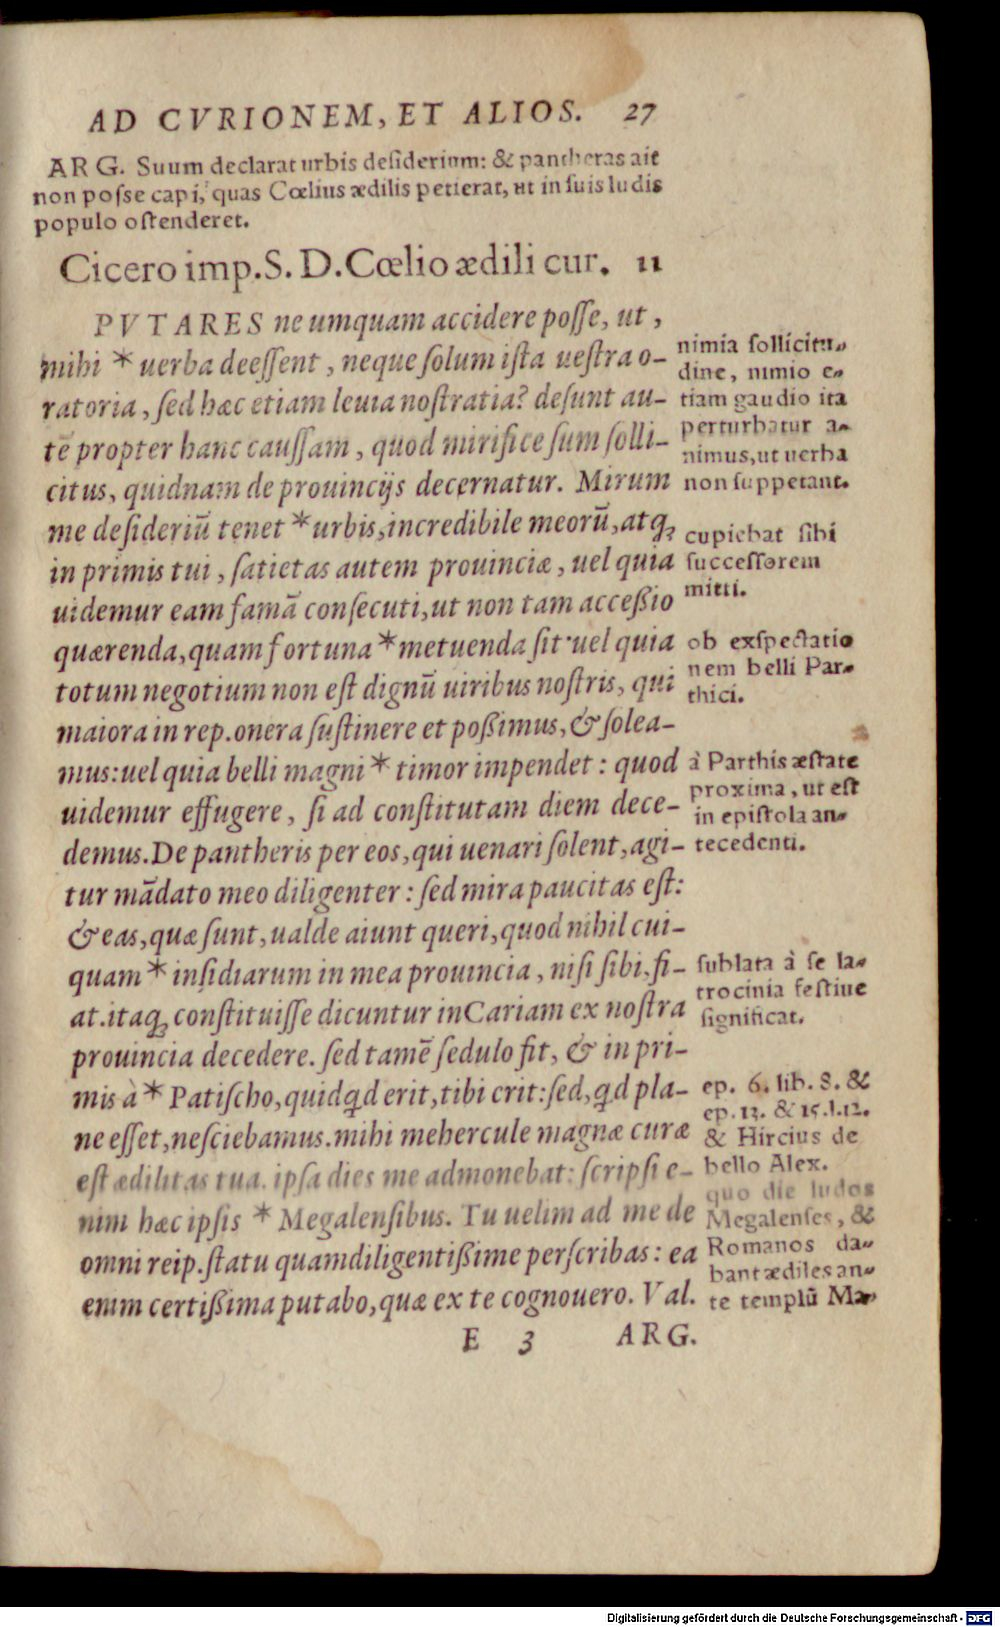 AD CVRIONEM, ET ALIOS. 27
ARG. Suum declarat urbis desiderium: & pantheras ait
non posse capi, quas Cœlius ædilis petierat, ut in suis ludis
populo ostenderet.
Cicero imp. S. D. Cœlio ædili cur. 11
PVTARES ne umquam accidere posse, ut,
mihi * uerba deessent, neque solum ista uestra o-
ratoria, sed hæc etiam leuia nostratia? desunt au-
tē propter hanc caussam, quod mirifice sum solli-
citus, quidnam de prouincijs decernatur. Mirum
me desideriū tenet * urbis, incredibile meorū, atq;
in primis tui, satietas autem prouinciæ, uel quia
uidemur eam famā consecuti, ut non tam acceßio
quærenda, quam fortuna * metuenda sit· uel quia
totum negotium non est dignū uiribus nostris, qui
maiora in rep. onera sustinere et poßimus, & solea-
mus: uel quia belli magni * timor impendet: quod
uidemur effugere, si ad constitutam diem dece-
demus. De pantheris per eos, qui uenari solent, agi-
tur mādato meo diligenter: sed mira paucitas est:
& eas, quæ sunt, ualde aiunt queri, quod nihil cui-
quam * insidiarum in mea prouincia, nisi sibi, fi-
at. itaq; constituisse dicuntur in Cariam ex nostra
prouincia decedere. sed tamē sedulo fit, & in pri-
mis à * Patischo, quidqd erit, tibi erit: sed, qd pla-
ne esset, nesciebamus. mihi mehercule magnæ curæ
est ædilitas tua. ipsa dies me admonebat: scripsi e-
nim hæc ipsis * Megalensibus. Tu uelim ad me de
omni reip. statu quamdiligentißime perscribas: ea
enim certißima putabo, quæ ex te cognouero. Val.
E 3 ARG.
nimia sollicitu-
dine, nimio e-
tiam gaudio ita
perturbatur a-
nimus, ut uerba
non suppetant.
cupiebat sibi
successorem
mitti.
ob exspectatio
nem belli Par-
thici.
à Parthis æstate
proxima, ut est
in epistola an-
tecedenti.
sublata à se la-
trocinia festiue
significat.
ep. 6. lib. 8. &
ep. 13. & 15. l. 12.
& Hircius de
bello Alex.
quo die ludos
Megalenses, &
Romanos da-
bant ædiles an-
te templū Ma-
Digitalisierung gefördert durch die Deutsche Forschungsgemeinschaft - DFG